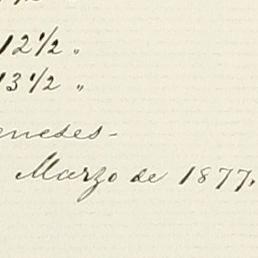 12 1/2 "
13 1/2 "
eneses-
Marzo de 1877.